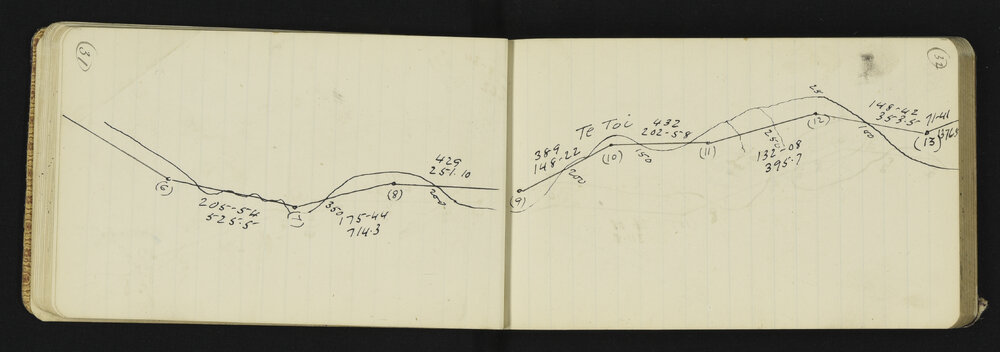 (31)
(6)
205-54
525.5
(7)
350
175-44
714.3
(8)
429
251.10
200
(32)
(9)
389
148-22
200
Te Toi
(10)
432
202-58
150
(11)
250
132-08
395.7
25
(12)
100
148-42
353.5
71-41
(13)